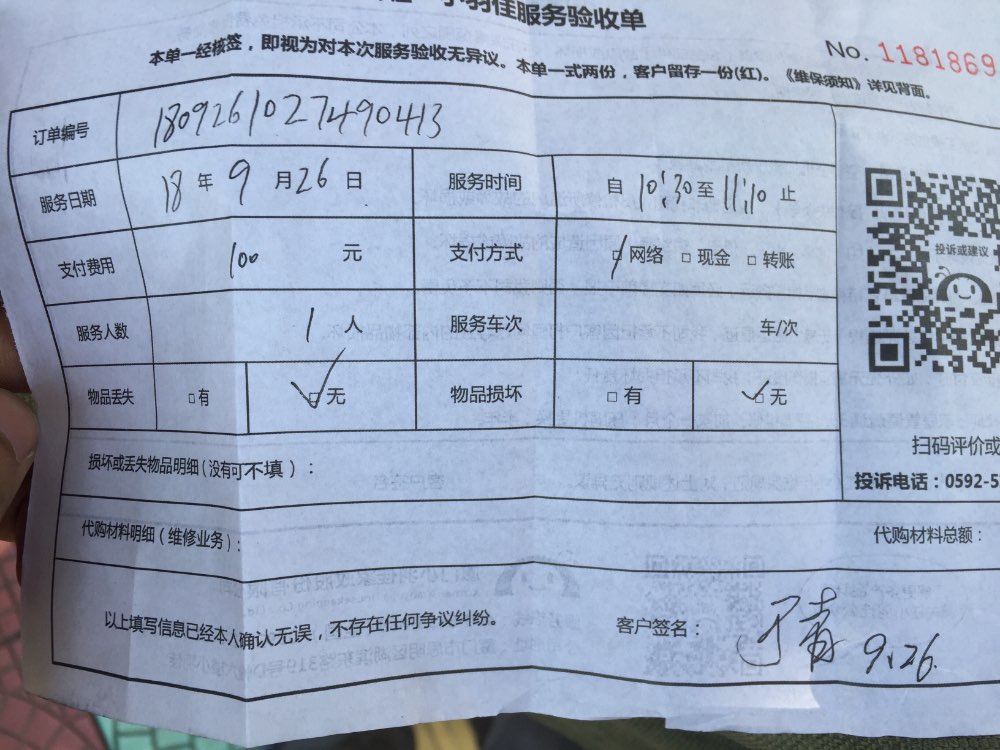 羽佳服务验收单
No. 1181869
本单一经核签，即视为对本次服务验收无异议。本单一式两份，客户留存一份(红)。《维保须知》详见背面。
订单编号 180926102749 0413
服务日期 18 年 9 月 26 日 服务时间 自 10:30 至 11:10 止
支付费用 100 元 支付方式 □网络 □现金 □转账
服务人数 1 人 服务车次 车/次
物品丢失 □有 ✓□无 物品损坏 □有 ✓□无
投诉或建议
扫码评价或
损坏或丢失物品明细(没有可不填)：
投诉电话：0592-5
代购材料明细(维修业务)：
代购材料总额：
以上填写信息已经本人确认无误，不存在任何争议纠纷。
客户签名： 丁青 9.26